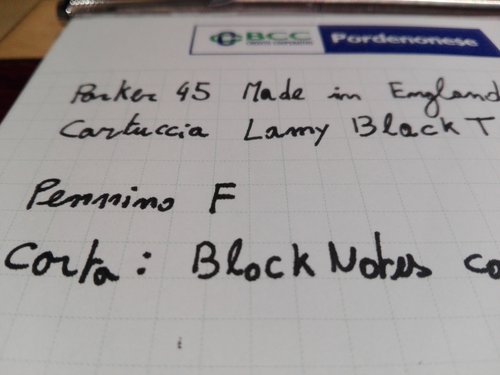 BCC Pordenonese
CREDITO COOPERATIVO
Parker 45 Made in England
Cartuccia Lamy Black T
Pennino F
Carta: Block Notes co